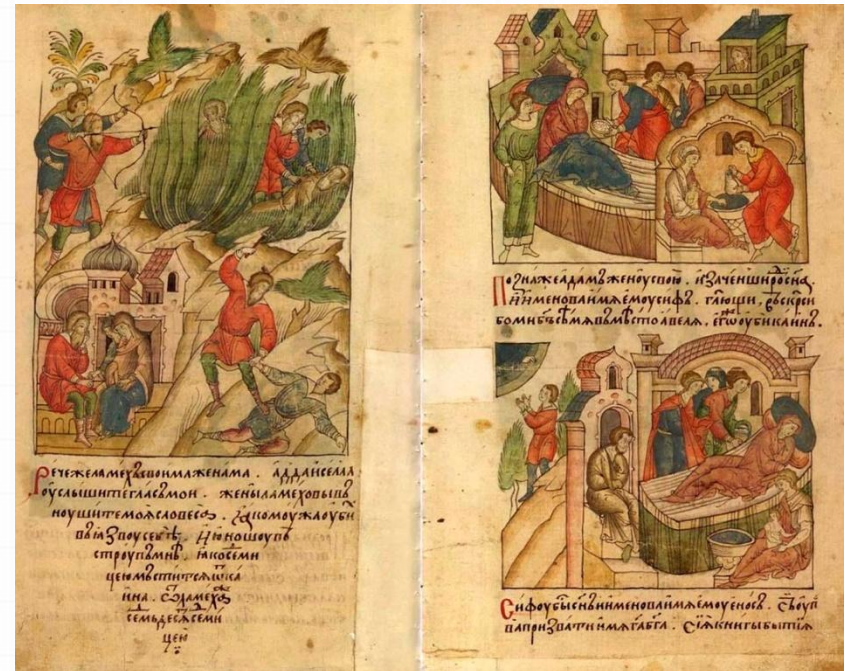 Рече же ламехъ своима женама . ад̾да и селла
оуслышите гласъ мои . жены ламеховы въ
ноушите моя словеса . яко моужа оуби
въ язвоу себѣ . и юношоу въ
строупъ мнѣ . яко семи
цею мьстится ѿ ка
ина . ѿ ламеха
семьдесят семи
цею
Позна же адамъ женоу свою . и заченши роди сн҃а
и именова имя емоу сифъ . гл҃ющи , въскрси
бо ми б҃ъ сѣмя въмѣсто авеля , егоже оуби каинъ .
Сифоу бысть сн҃ъ и именова имя емоу еносъ . съ оуп
ва призвати имя га б҃га . сия книгы бытия